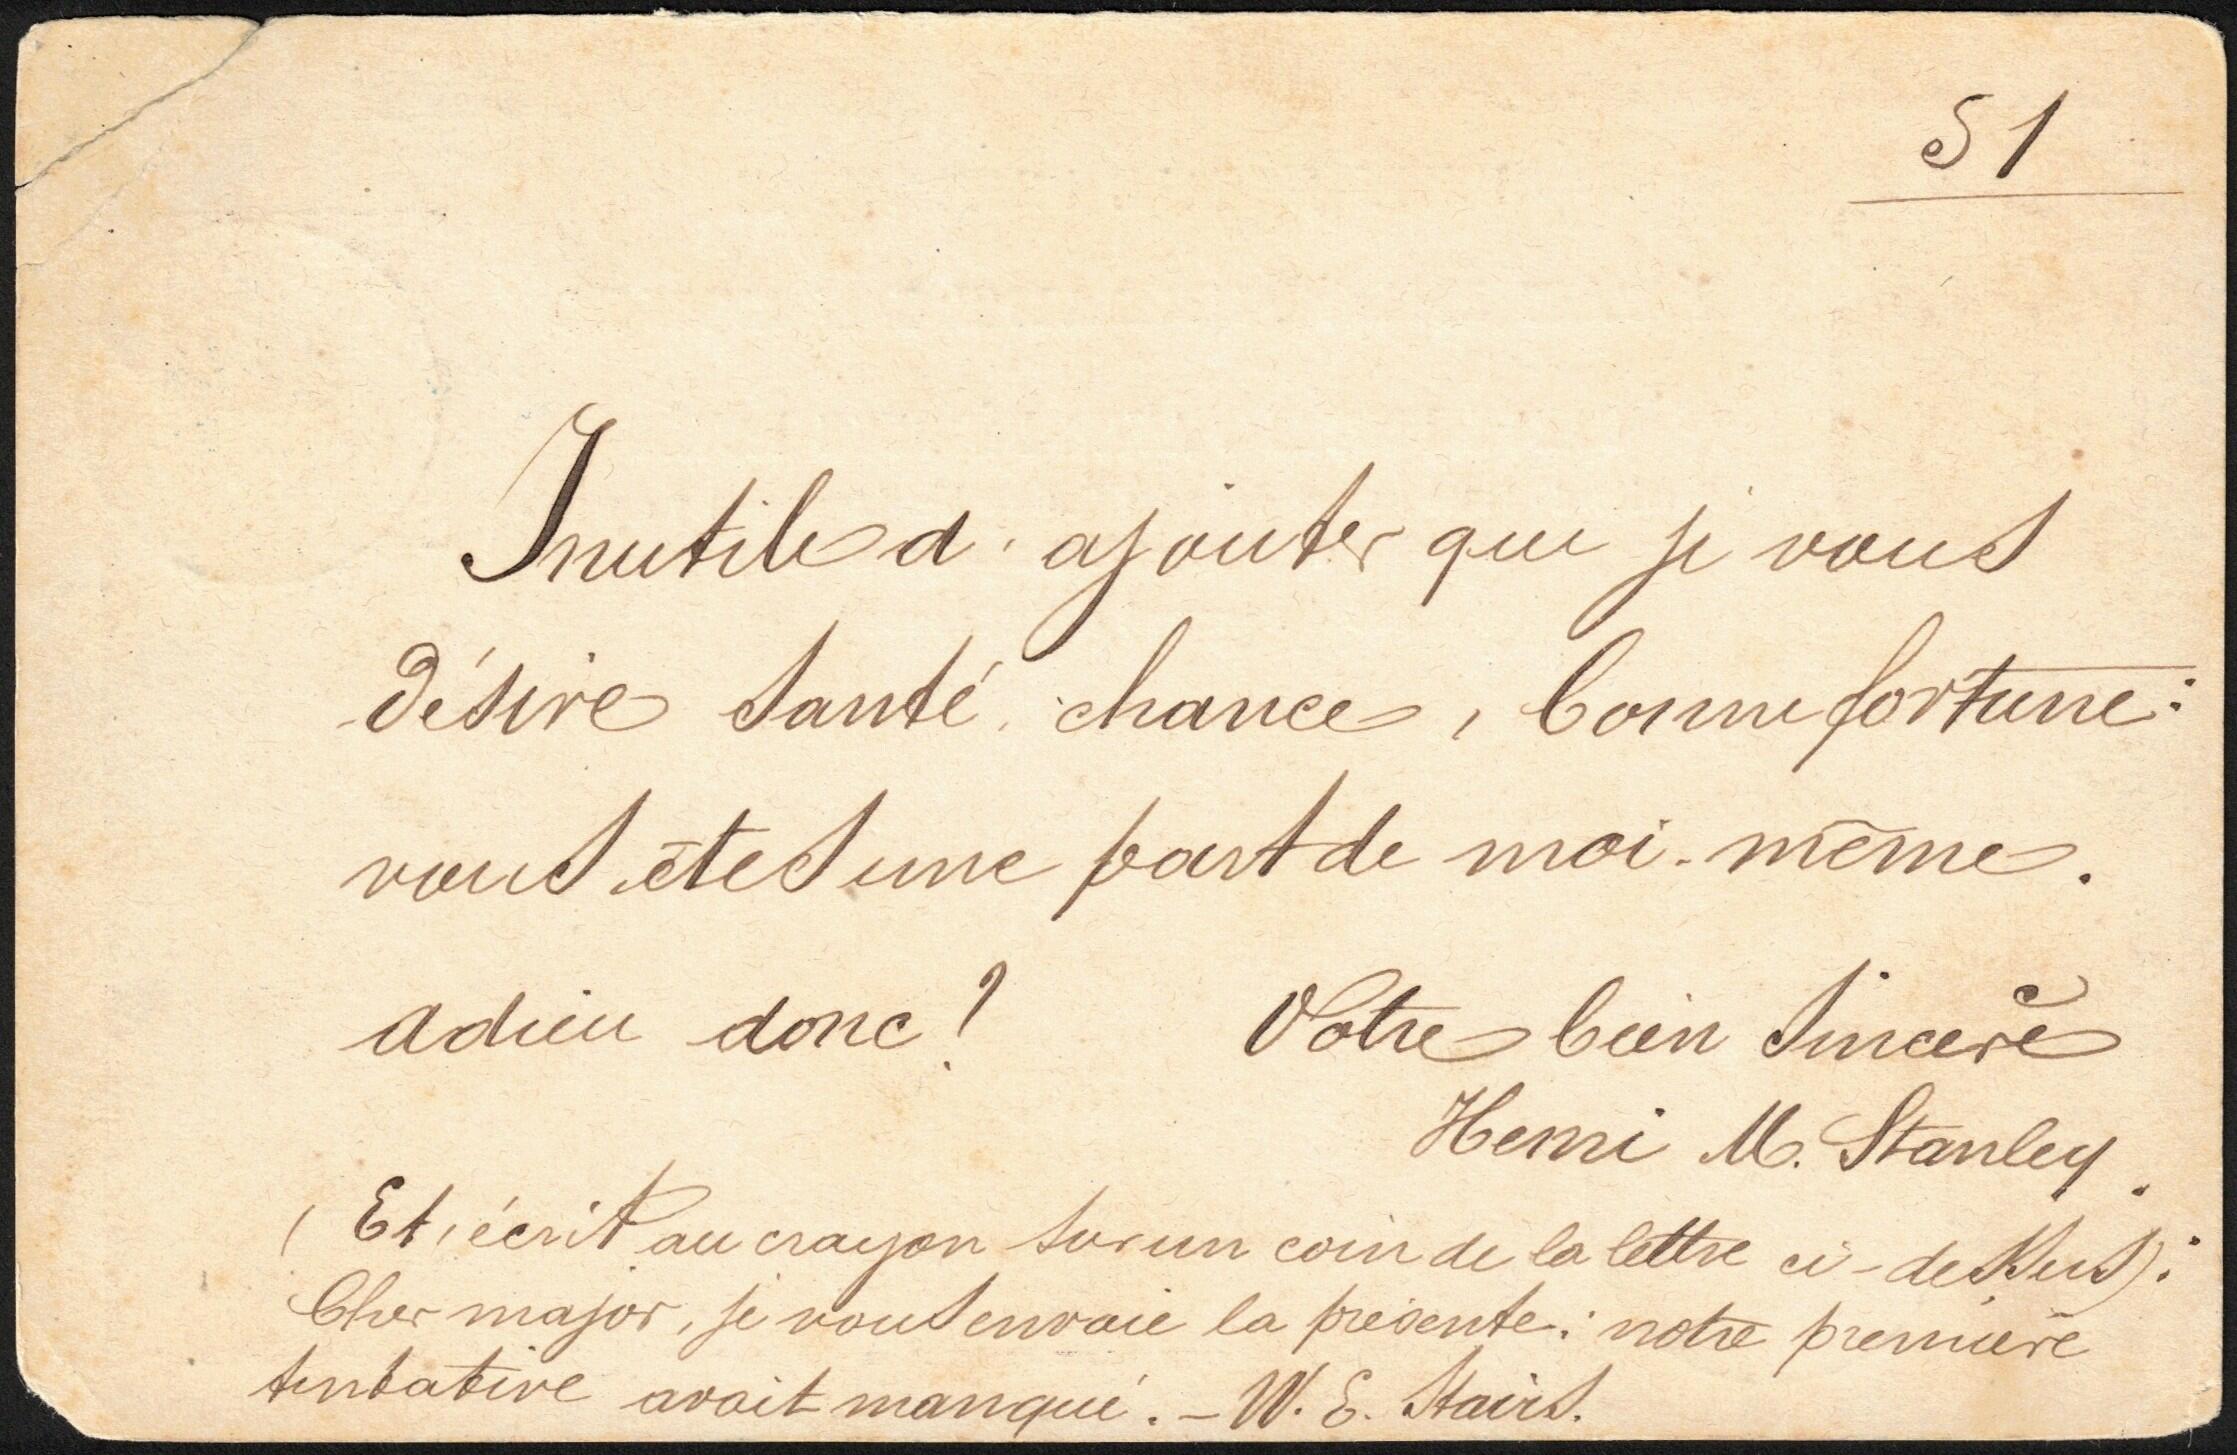 51
Inutile d'ajouter que je vous
désire santé, chance, bonne fortune:
vous êtes une part de moi-même.
adieu donc! Votre bien sincère
Henri M. Stanley.
(Et, écrit au crayon sur un coin de la lettre ci-dessus):
Cher major, je vous envoie la présente: notre première
tentative avait manqué. – W. E. Stairs.